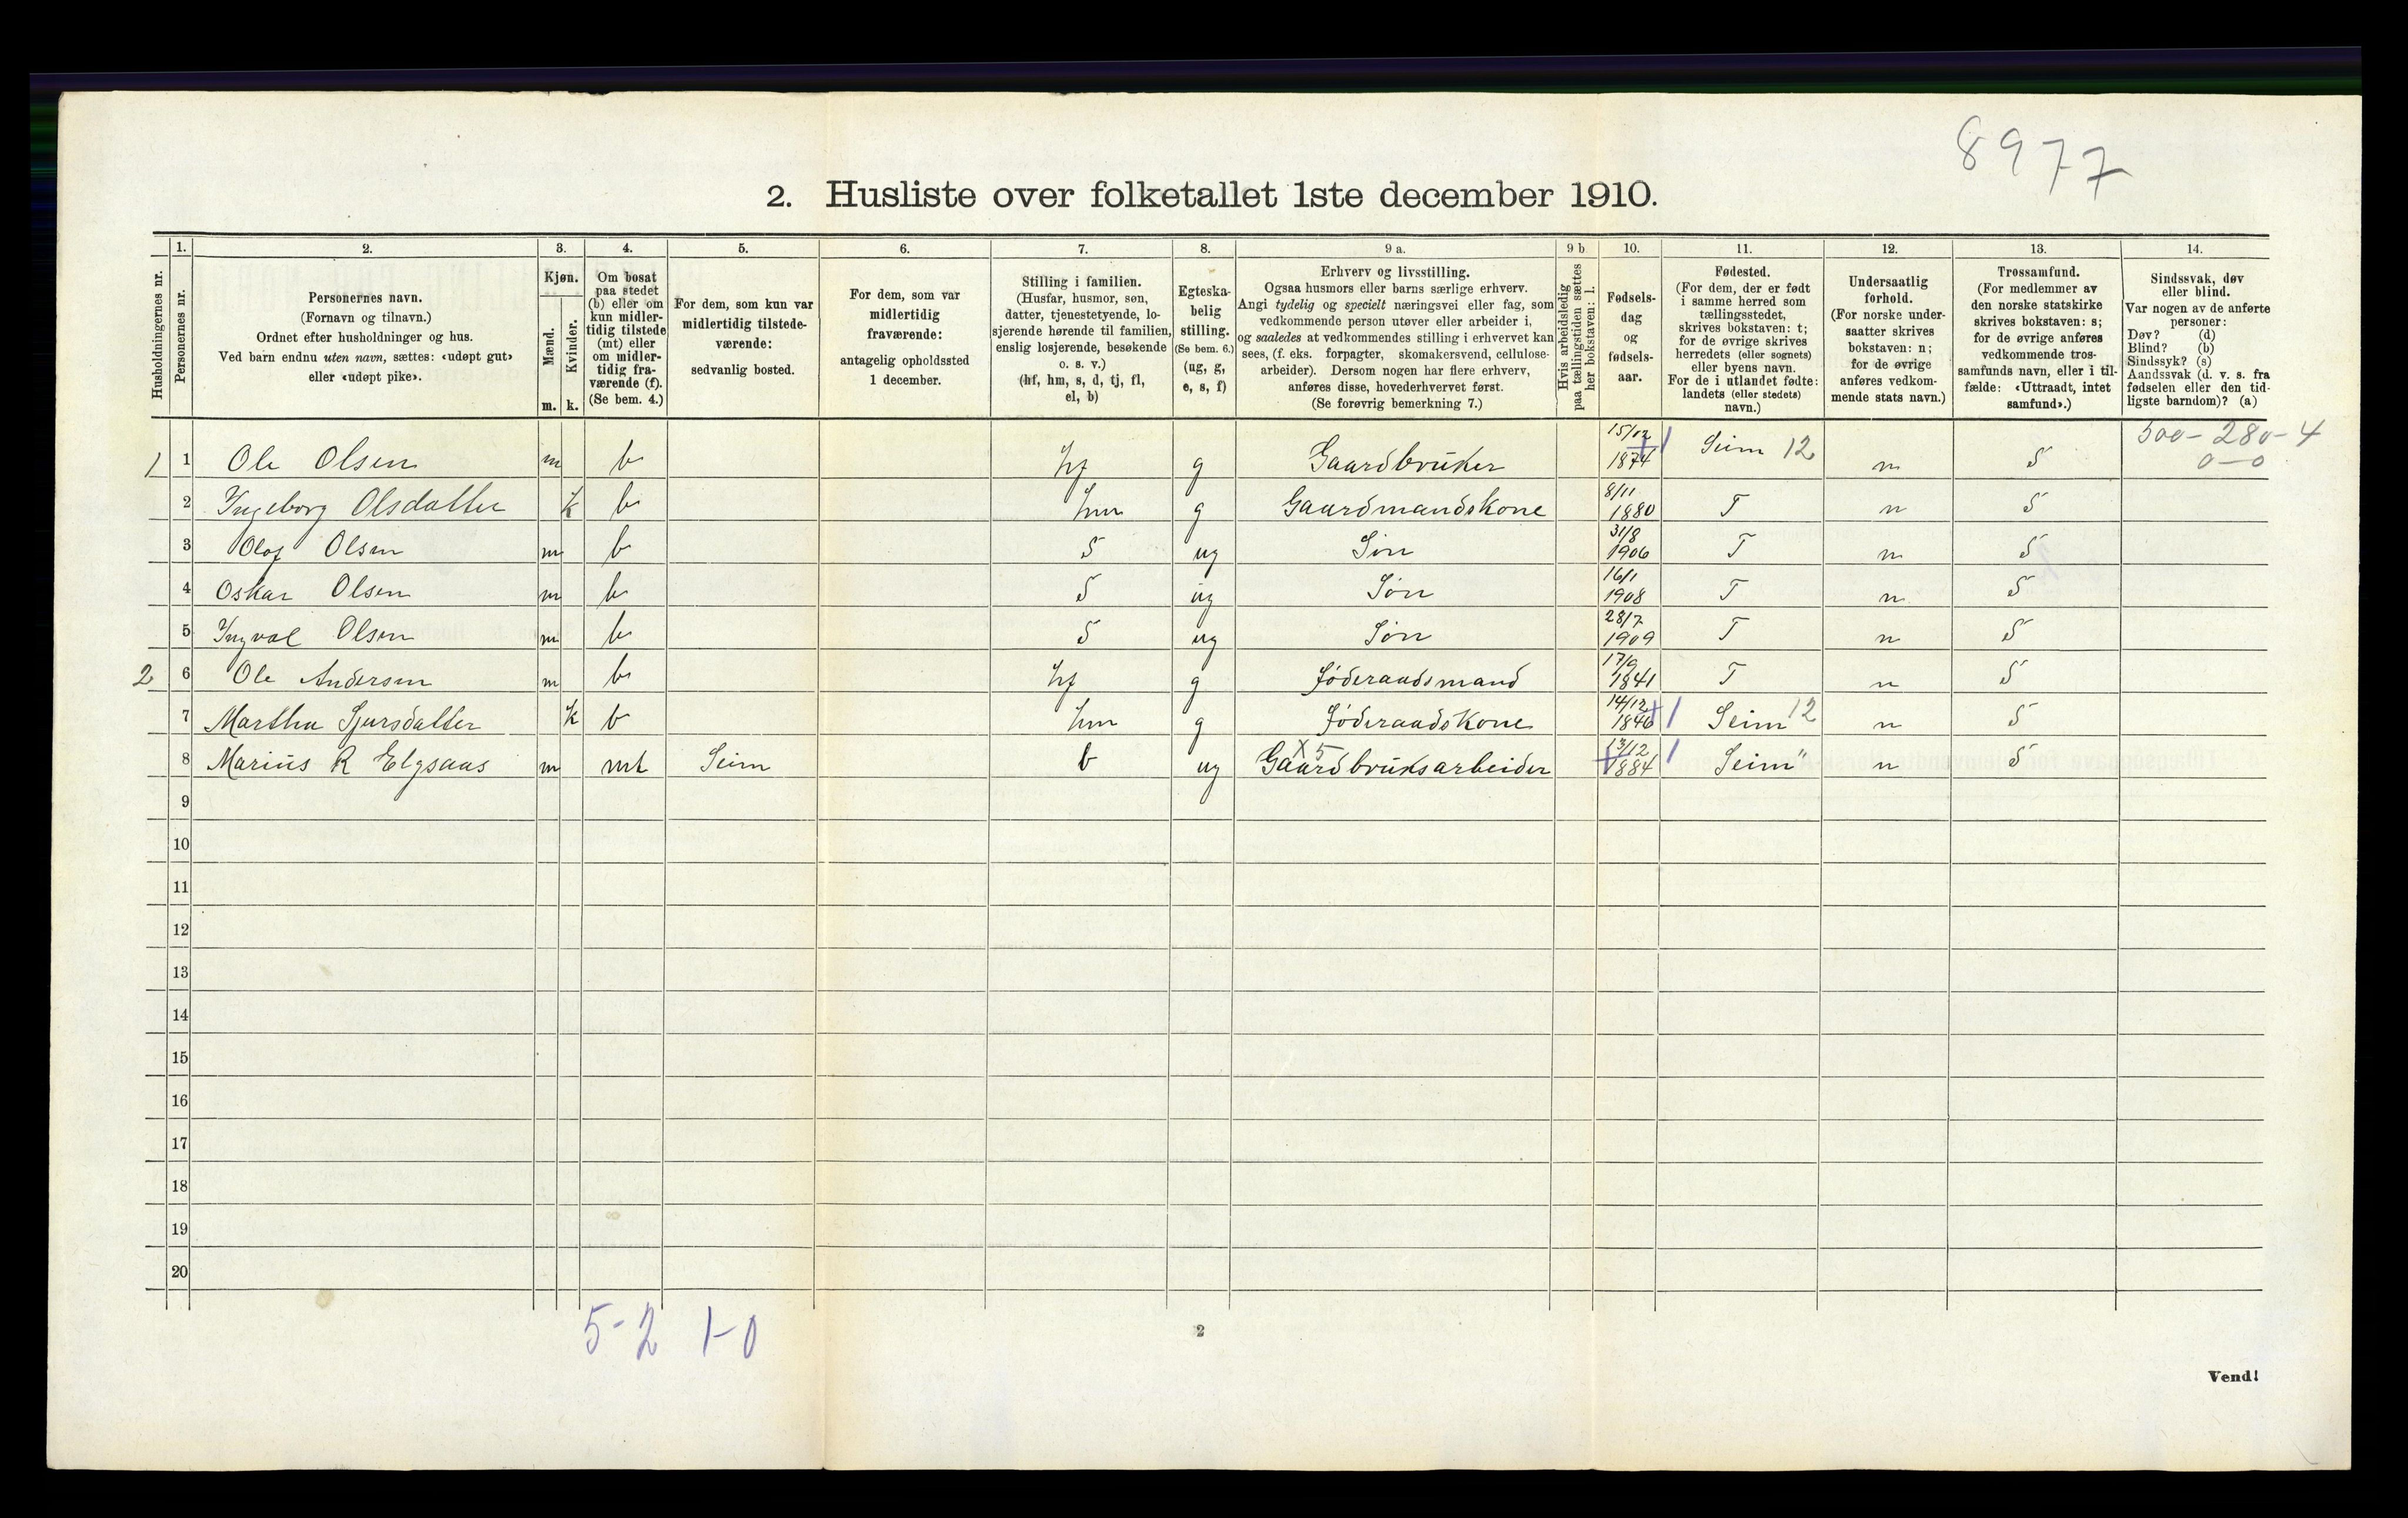 8977
2. Husliste over folketallet 1ste december 1910.
Husholdningernes nr.
1.
Personernes nr.
2.
Personernes navn.
(Fornavn og tilnavn.)
Ordnet efter husholdninger og hus.
Ved barn endnu uten navn, sættes: «udøpt gut»
eller «udøpt pike».
3.
Kjøn.
Mænd.
Kvinder.
m. k.
4.
Om bosat
paa stedet
(b) eller om
kun midler-
tidig tilstede
(mt) eller
om midler-
tidig fra-
værende (f).
(Se bem. 4.)
5.
For dem, som kun var
midlertidig tilstede-
værende:
sedvanlig bosted.
6.
For dem, som var
midlertidig
fraværende:
antagelig opholdssted
1 december.
7.
Stilling i familien.
(Husfar, husmor, søn,
datter, tjenestetyende, lo-
sjerende hørende til familien,
enslig losjerende, besøkende
o. s. v.)
(hf, hm, s, d, tj, fl,
el, b)
8.
Egteska-
belig
stilling.
(Se bem. 6.)
(ug, g,
e, s, f)
9 a.
Erhverv og livsstilling.
Ogsaa husmors eller barns særlige erhverv.
Angi tydelig og specielt næringsvei eller fag, som
vedkommende person utøver eller arbeider i,
og saaledes at vedkommendes stilling i erhvervet kan
sees, (f. eks. forpagter, skomakersvend, cellulose-
arbeider). Dersom nogen har flere erhverv,
anføres disse, hovederhvervet først.
(Se forøvrig bemerkning 7.)
9 b
Hvis arbeidsledig
paa tællingstiden sættes
her bokstaven: l.
10.
Fødsels-
dag
og
fødsels-
aar.
11.
Fødested.
(For dem, der er født
i samme herred som
tællingsstedet,
skrives bokstaven: t;
for de øvrige skrives
herredets (eller sognets)
eller byens navn.
For de i utlandet fødte:
landets (eller stedets)
navn.)
12.
Undersaatlig
forhold.
(For norske under-
saatter skrives
bokstaven: n;
for de øvrige
anføres vedkom-
mende stats navn.)
13.
Trossamfund.
(For medlemmer av
den norske statskirke
skrives bokstaven: s;
for de øvrige anføres
vedkommende tros-
samfunds navn, eller i til-
fælde: «Uttraadt, intet
samfund».)
14.
Sindssvak, døv
eller blind.
Var nogen av de anførte
personer:
Døv? (d)
Blind? (b)
Sindssyk? (s)
Aandssvak (d. v. s. fra
fødselen eller den tid-
ligste barndom)? (a)
1 1 Ole Olsen m b hf g Gaardbruker 15/12 1874 1 Seim 12 n S 500-280-4 0-0
2 Ingeborg Olsdatter k b hm g Gaardmandskone 8/11 1880 T n S
3 Olof Olsen m b S ug Søn 31/8 1906 T n S
4 Oskar Olsen m b S ug Søn 16/1 1908 T n S
5 Ingval Olsen m b S ug Søn 28/7 1909 T n S
2 6 Ole Andersen m b hf g Føderaadsmand 17/9 1841 T n S
7 Martha Sjursdatter k b hm g Føderaadskone 14/12 1846 1 Seim 12 n S
8 Marius R Elgsaas m mt Seim b ug Gaardbruksarbeider x 5 13/12 1884 1 Seim " n S
9
10
11
12
13
14
15
16
17
18
19
20
5-2 1-0
2
Vend!